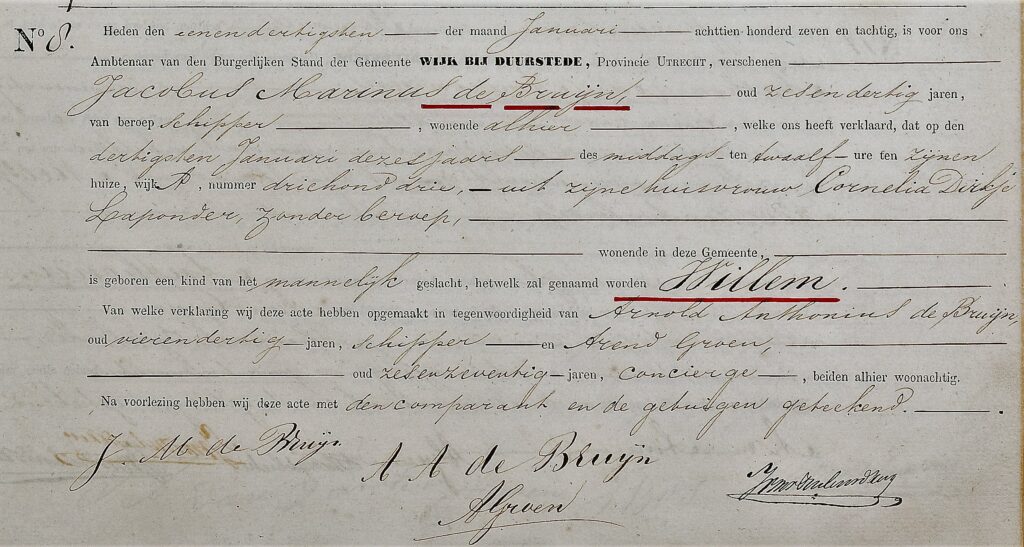 No 8. Heden den eenendertigsten der maand Januari achttien honderd zeven en tachtig, is voor ons
Ambtenaar van den Burgerlijken Stand der Gemeente WIJK BIJ DUURSTEDE, Provincie UTRECHT, verschenen
Jacobus Marinus de Bruijn, oud zesendertig jaren,
van beroep schipper, wonende alhier, welke ons heeft verklaard, dat op den
dertigsten Januari dezes jaars des middags ten twaalf ure ten zijnen
huize, wijk A, nummer driehond drie, uit zijne huisvrouw Cornelia Dirkje
Laponder, zonder beroep,
wonende in deze Gemeente,
is geboren een kind van het mannelijk geslacht, hetwelk zal genaamd worden Willem.
Van welke verklaring wij deze acte hebben opgemaakt in tegenwoordigheid van Arnold Anthonius de Bruijn,
oud vierendertig jaren, schipper en Arend Groen,
oud zesenzeventig jaren, concierge, beiden alhier woonachtig.
Na voorlezing hebben wij deze acte met den comparant en de getuigen geteekend.
J. M de Bruijn
A A de Bruijn
AGroen